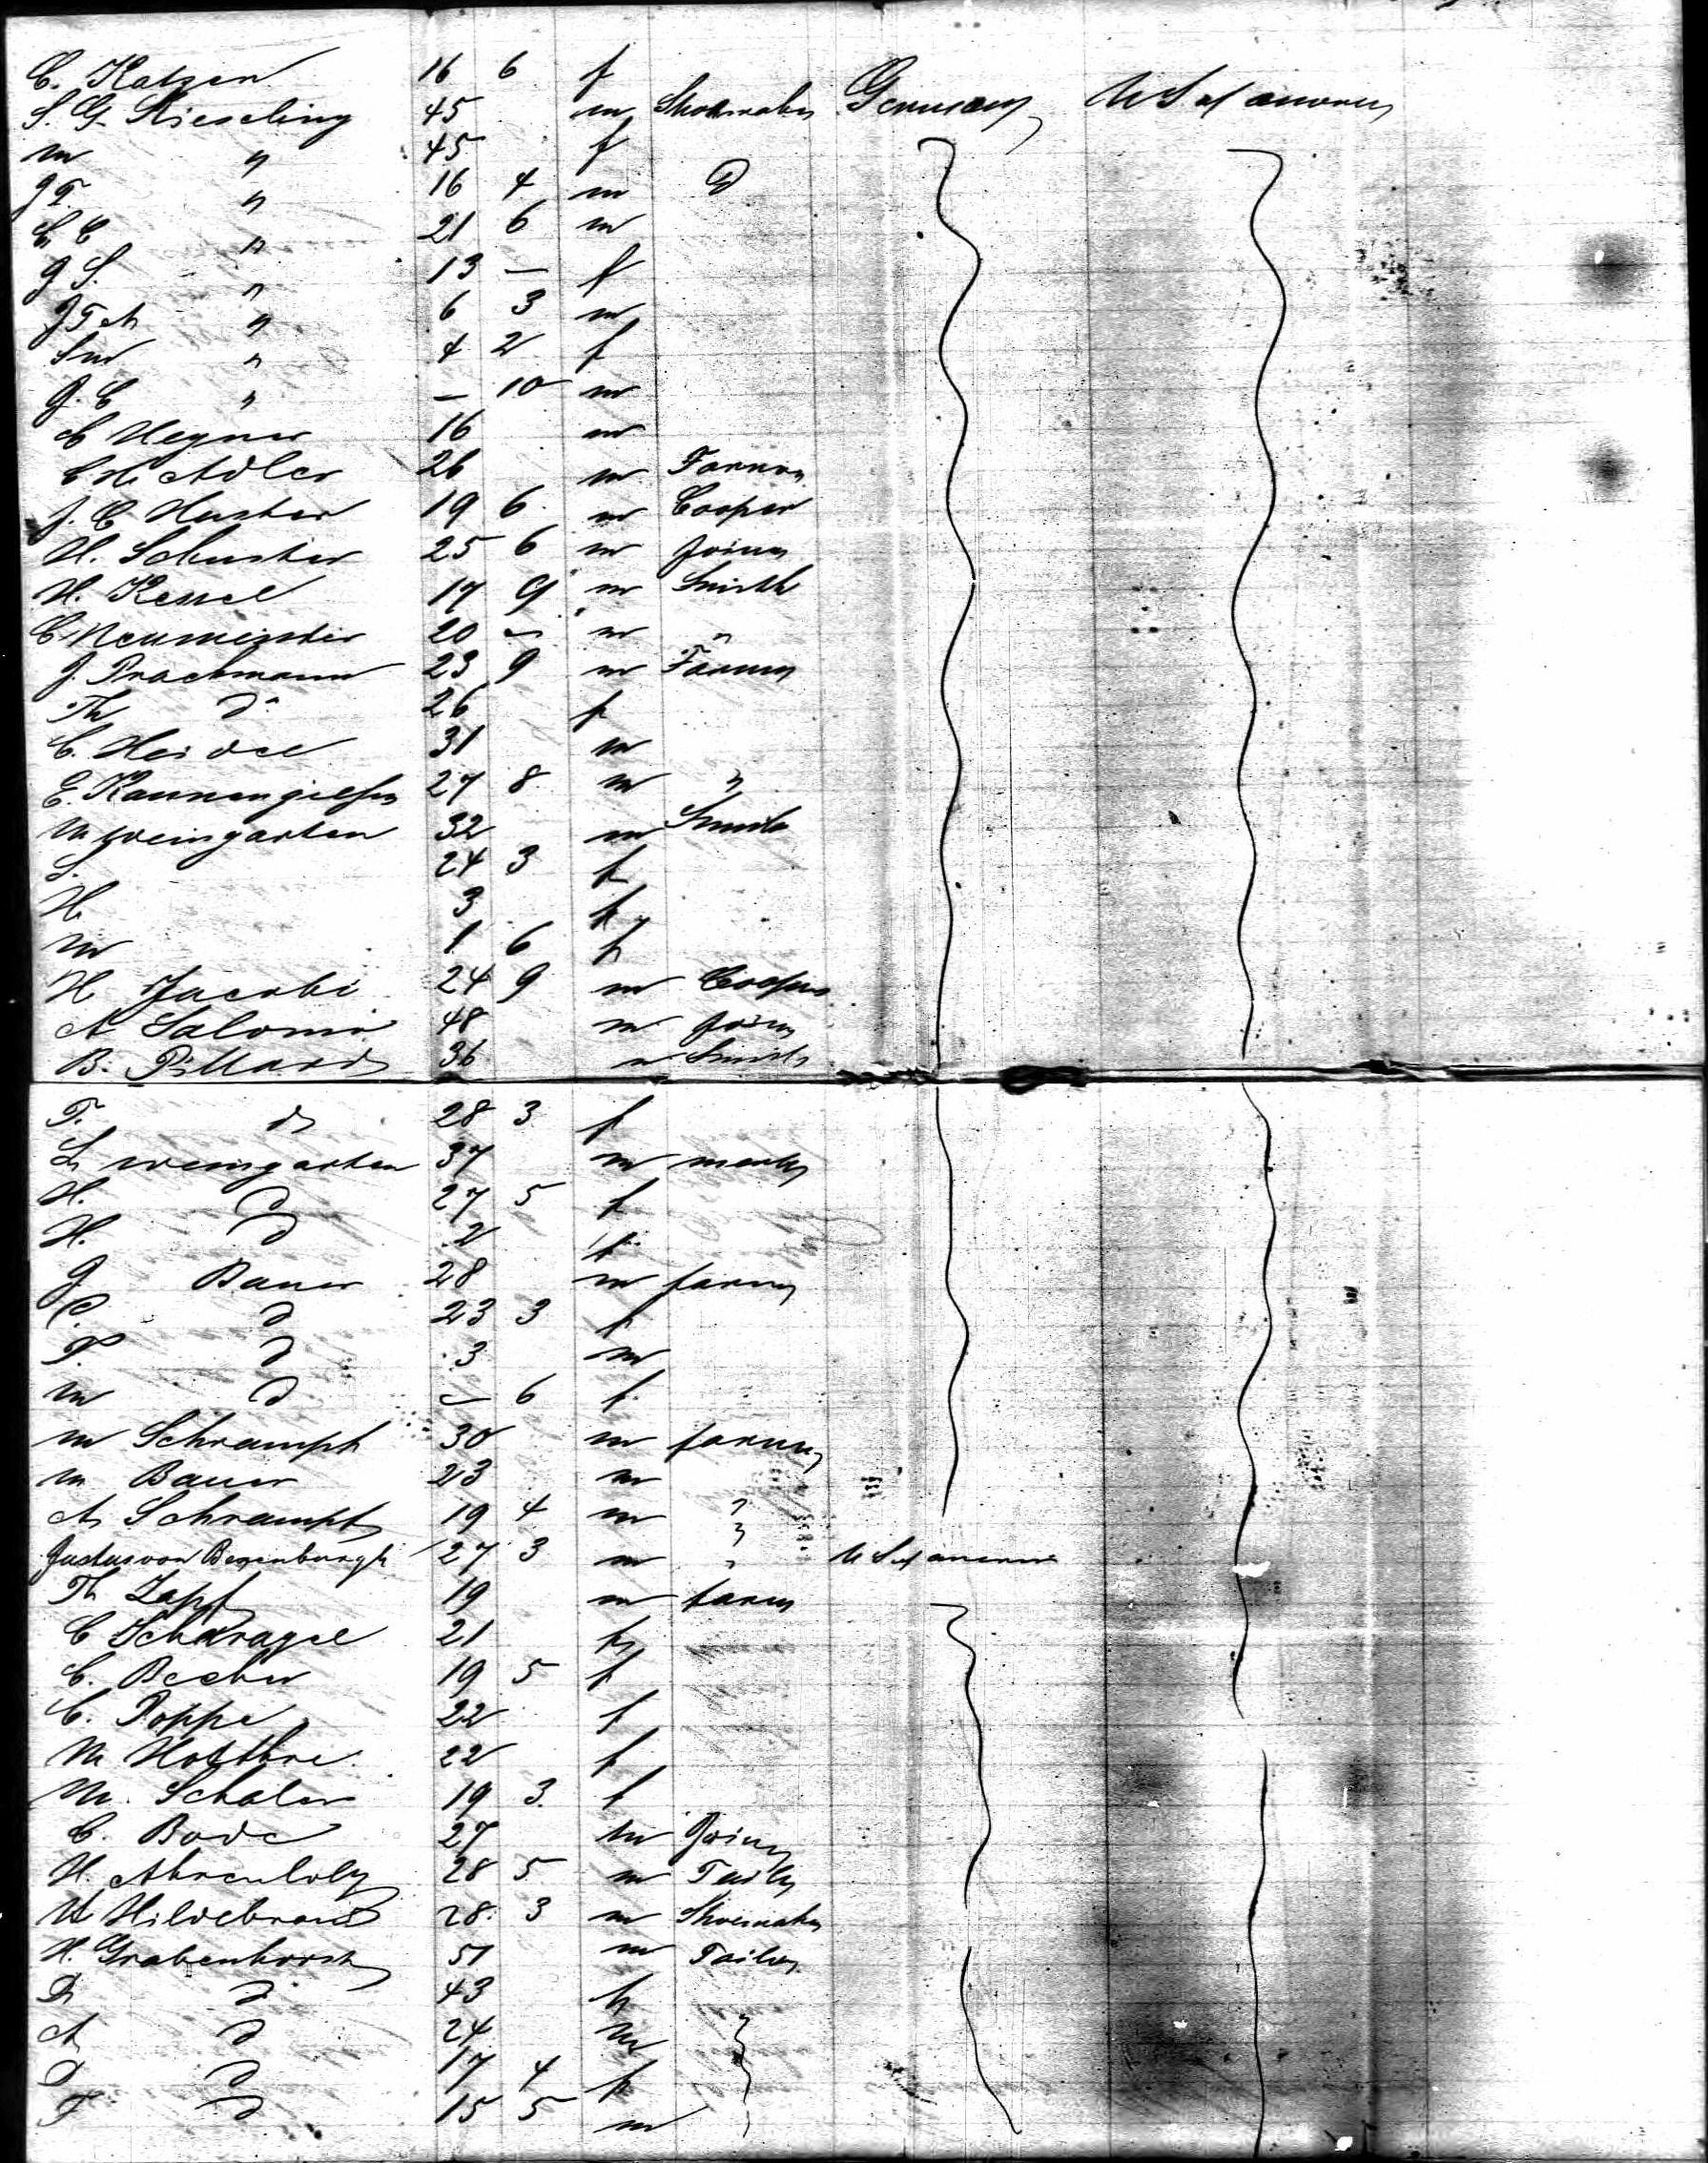 C. Katzen 16 6 f
S. G. Kieseling 45 m Shoemaker Germany U S of America
M " 45 f
J F. " 16 4 m D
C C " 21 6 m
J S. " 13 — f
J F A " 6 3 m
S M " 4 2 f
J. C " — 10 m
C Hegner 16 m
C H Adler 26 m Farmer
J. C Huster 19 6 m Cooper
H. Schuster 25 6 m Joiner
H. Kessel 17 9 m Smith
C Neumeister 20 — m "
J. Prachmann 23 9 m Farmer
Th do 26 f
C. Heidel 31 m
E. Kannengiesser 27 8 m "
M Weingarten 32 m Smith
S. 24 3 f
H 3 f
M 1 6 f
H Jacobi 24 9 m Cooper
A Salomo 48 m Joiner
B. Pillard 36 m Smith
T. do 28 3 f
L Weingarten 37 m
H. D 27 5 f
H. D 2 f
J Bauer 28 m farmer
C. D 23 3 f
F. D 3 m
M D — 6 f
M Schrampf 30 m farmer
M Bauer 23 m
A Schrampf 19 4 m "
Justus von Bezenburgh 27 3 m " U S of America
Th Zapf 19 m farmer
C Schnragel 21 f
C. Becker 19 5 f
C. Poppe 22 f
M 22 f
M. Schaler 19 3 f
C. Bode 27 m Joiner
H. Ahrenholz 28 5 m Tailor
H Hildebrand 28 3 m Shoemaker
H. Grabenhorst 51 m Tailor
D D 43 f
A D 24 m "
D D 17 4 f
F D 15 5 m